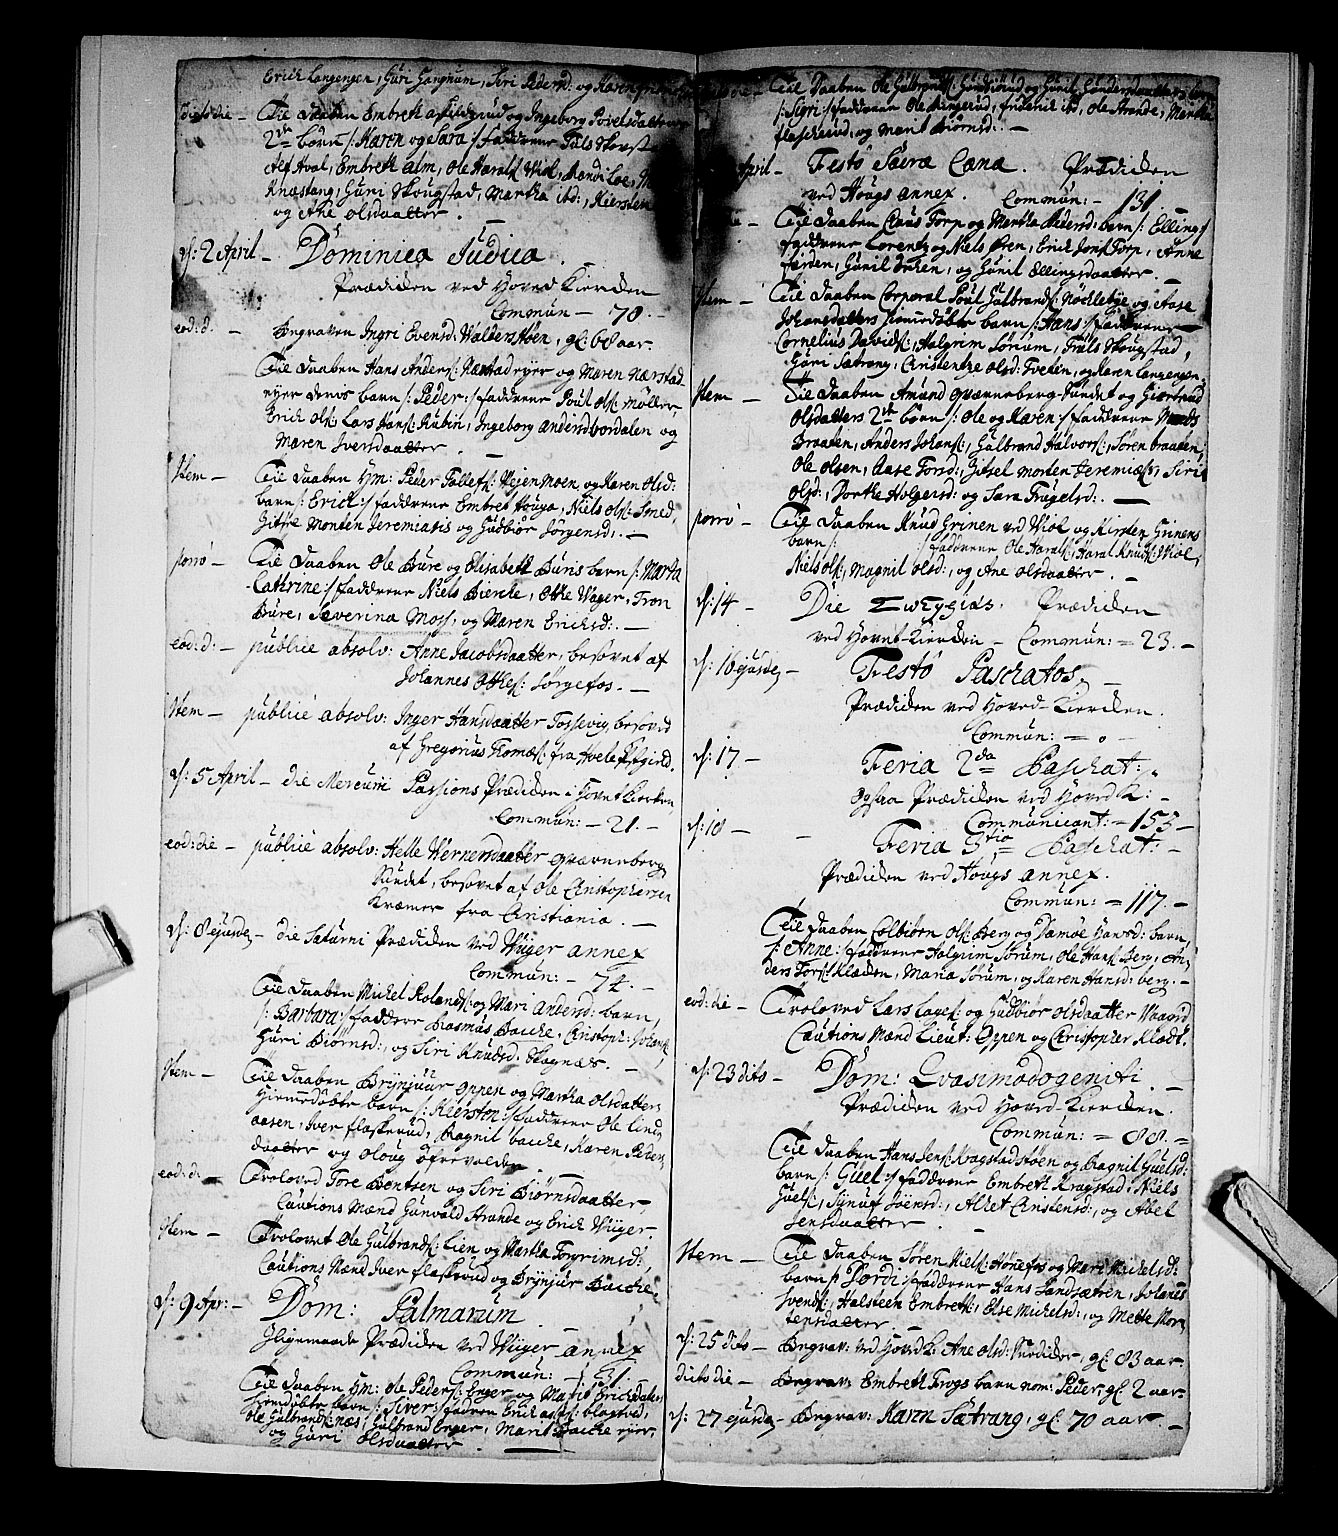 Erich Langengen, Guri Gangnum, Siri Pedersd: og Karen
dicto die – Till Daaben Embreth asfilderud og Ingeborg Povelsdatters
2de børn /: Karen og Sara :/ fadderne Fals Skoust
Alf Hval, Embreth Alm, Ole Harals: Wiol, Randi Loe,
Knæstang, Guri Skougstad, Martha ibd:, Kiersten
og Ane Olsdaatter. –
d: 2 April – Dominica Judica.
Prædicken ved Hoved Kiercken
Commun – 70. –
eod: d. – Begraven Ingri Evensd: Walderstøen, gl: 68 aar.
Till Daaben Hans Anders: Nærstad eyer og Maren Nærstad
eyer deris barn /: Peder :/ fadderne Poul Ols: Møller
Erich Ols: Lars Hans: Rubin, Ingeborg Andersd: bordalen og
Maren Iversdaatter. –
Item – Till Daaben Hm: Peder Tolless: Vejenmoen og Karen Olsd:
barn /: Erich :/ fadderne Embret Houga, Niels Ols: Smed,
Gitsle Monten Jeremiasis og Gudbiør Jørgensd: –
porro – Till Daaben Ole Bure og Elisabeth Buris barn /: Marta
Cathrine :/ fadderne Niels Biercke, Otte Wager, Tron
Bure, Severina Moss, og Maren Ericksd: –
eod: d: – publice absolv: Anne Jacobsdaatter, besovet af
Johannes Ottes: Sørgefos. –
Item – publice absolv: Inger Hansdaatter Tossevig, besovid
af Gregorius Thomæs: fra Hvele Præstgield.
d: 5 April – die Mercurii Passions Prædicken i Hovet Kierken,
Commun: – 21. –
eod: die – publice absolv: Helle Wernersdaatter Qværnebergs
Fundet, besovet af Ole Christophersen
Kræmer fra Christiania. –
d: 8 ejusde – die Saturni Prædicken ved Wiiger annex
Commun: – 74. –
Till Daaben Michel Rolands: og Mari Andersd: barn
/: Barbara :/ faddere Rasmus Bacche, Christoph: Johans:
Guri Biørnsd:, og Siri Knudsd: Skagnæs. –
Item – Till Daaben Brynjuur Oppen og Martha Olsdatters
hiemmedøbte barn /: Kiersten :/ fadderne Ole Lind
aasen, Iver Flaskerud, Ragnil Bacche, Karen Peders
daatter og Oloug Ofrevolden. –
eod: d: – Troloved Tore Bentsen og Siri Biørnsdaatter,
Cautions Mænd Gunvald Strande og Erich Wiiger.
Item – Trolovet Ole Gulbrands: Lien og Martha Torgrimsd:,
Cautions Mænd Iver Flaskerud og Brynjur Bacche,
d: 9 Apr: – Dom: Palmarum
Prædicken ved Wiiger annex
Commun: – 51. –
Till Daaben Hm: Ole Peders: Enger og Marit Erichsdatters
hiemdøbte barn /: Siver :/ fadderne Erich
Ole Gulbrands: næs, Gulbrand Enger, Marit Bacche eyer,
og Guri Olsdaatter. –
die – Till Daaben Ole Gulbrands: og Gunil Gundersdaatters barn
/: Sigri :/ fadderne Ole Ringerud, friderich ibd, Ole Strande, Martha
flaskerud, og Marit Biørnsd: –
April – Festo Sacræ Cænæ. Prædicken
ved Hougs annex. Commun: – 131. –
Till Daaben Claus Torp og Martha Pedersd: barn /: Elling :/
fadderne Lorentz og Niels Øren, Erich Torp, Anne
færden, Gunil Øren, og Gunil Ellingsdaatter. –
Item – Till Daaben Corporal Poul Gulbrands: Nøcklebye og Aase
Johansdatters hiemedøbte barn /: Hans :/ fadderne
Cornelius Davids:, Halgrim Sørum, Truls Skougstad,
Guri Sætrang, Christentze Olsd: Tveten, og Karen Langengen.
Item – Till Daaben Amund Qværneberg-Fundet og Giertrud
Olsdatters 2de børn /: Ole og Karen :/ fadderne Mands
Braaten, Anders Johans:, Gulbrand Halvors:, Søren braaten,
Ole Olsen, Aase Torsd:, Gitsel Monten Jeremiæs:, Siri
Olsd:, Dorthe Holgersd: og Sara Trugelsd:. –
porro – Till Daaben Knud Grinen ved Wiol og Kirsten Grinens
barn /: :/ fadderne Ole Harals: Haral Knuds: Wiol,
Niels Ols:, Magnil Olsd:, og Ane Olsdaatter. –
d: 14 – Die Σωτηρίας. Prædicken
ved Hovet-Kiercken – Commun: – 23. –
d: 16 ejusde – Festo Paschatos. –
Prædicken ved Hoved-Kiercken.
Commun: – 0 –
d: 17 – Feria 2da Paschat:.
Ogsaa Prædicken ved Hoved K: –
Communicant: – 153 –
d: 18 – Feria 3tia Paschat: –
Prædicken ved Hougs annex.
Commun: – 117. –
Till Daaben Colbiørn Ols: Berg og Damoe Hansd: barn
/: Anne :/ fadderne Halgrim Sørum, Ole Hans: Berg, An
ders Tors: Kladen, Maria Sørum, og Karen Hansd: berg: –
eod: die – Trolovved Lars Lages: og Gudbiør Olsdaatter
Cautions Mænd Lieut: Oppen og Christopher Klædt.
d: 23 dito – Dom: Qvasimodogeniti. –
Prædicken ved Hoved-Kiercken.
Commun: – 88. –
Till Daaben Hans Jens: Kragstadstøen og Ragnil Guelsd:
barn /: Guel :/ fadderne Embreth Kragstad, Niels
Guels:, Synuf Joensd:, Allet Christensd:, og Abel
Jensdaatter. –
Item – Till Daaben Søren Niels: Hønefos og Mari Michelsd:
barn /: Dordi :/ fadderne Hans Sandsætren, Johanes
Svends:, Halsteen Embreths:, Else Michelsd:, og Mette Mor
tensdaatter. –
d: 25 dito – Begrav: ved Hoved K: Ane Olsd: , gl: 83 aar.
dicto die – Begrav: Embreth Frogs barn nom: Peder, gl: 2 aar.
d: 27 ejusde – Begrav: Karen Sætrang, gl: 70 aar. –